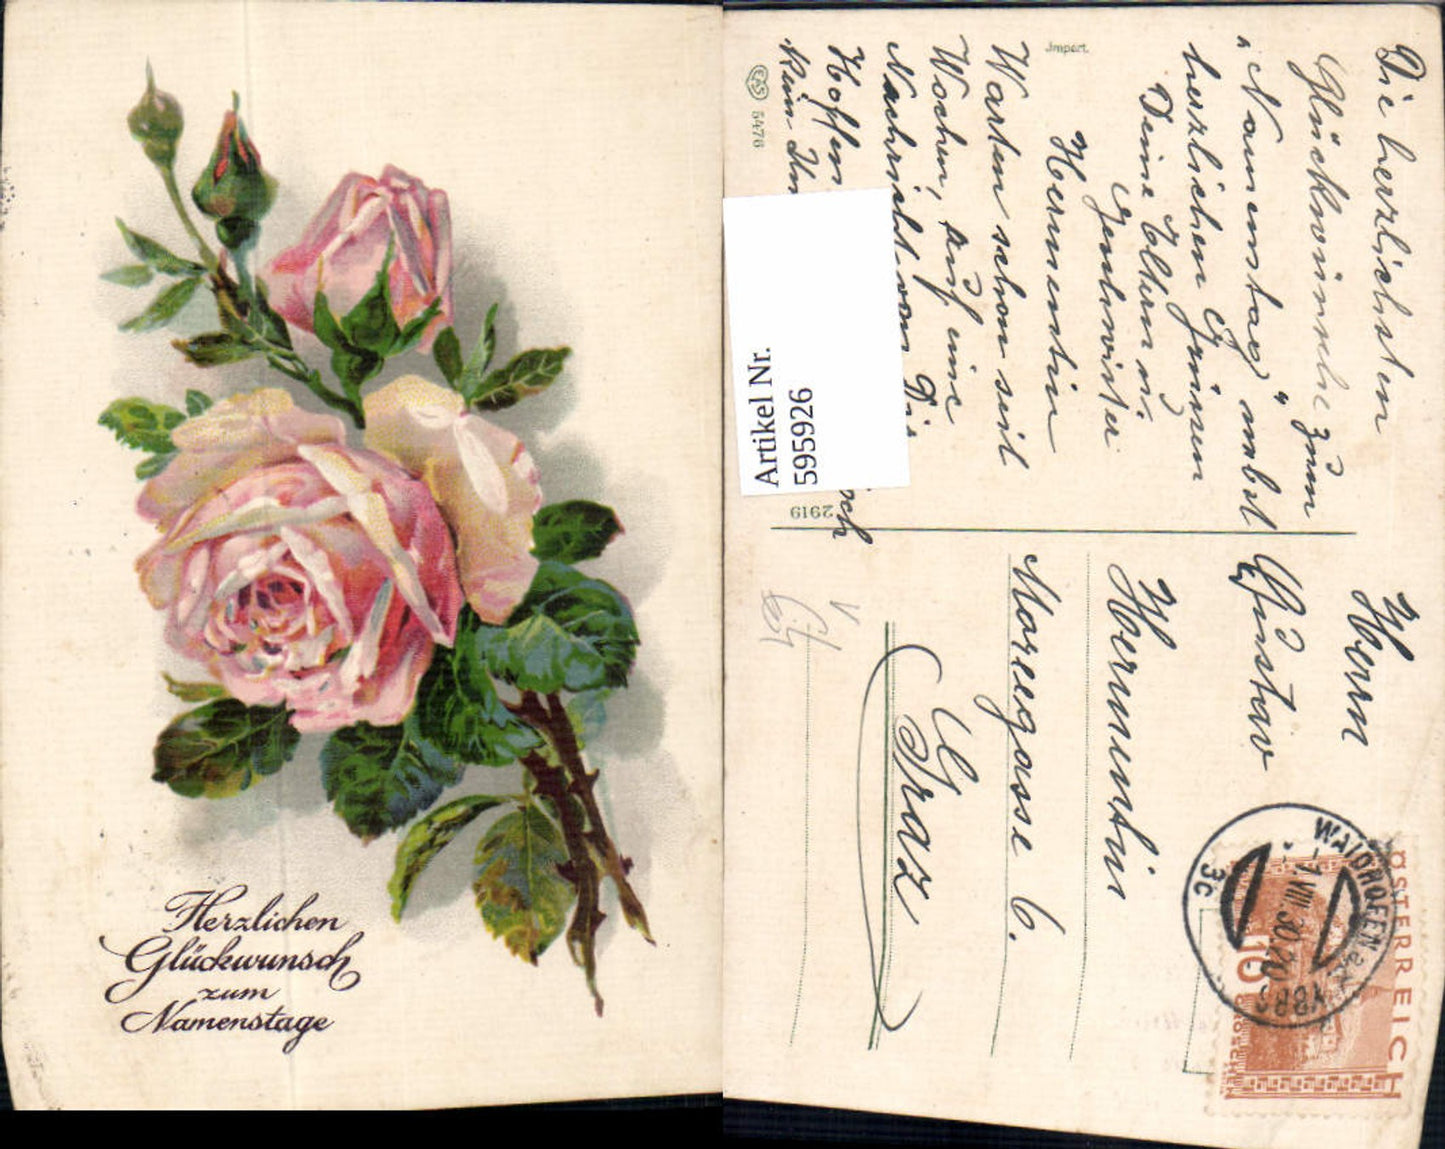 Herzlichen
Glückwunsch
zum
Namenstage
Die herzlichsten
Glückwünsche zum
"Namenstag" nebst
herzlichen Grüssen
Deine Eltern u.
Geschwister
Hermentin
Warten schon seit
Wochen, auf eine
Nachricht von Dir
Hoffen
Import.
EAS 5476
2919
Artikel Nr.
595926
Herrn
Gustav
Hermentin
Morregasse 6.
Graz
WAIDHOFEN a.d. YBBS
-7.VIII.30.20
3c
ÖSTERREICH
10 GROSCHEN